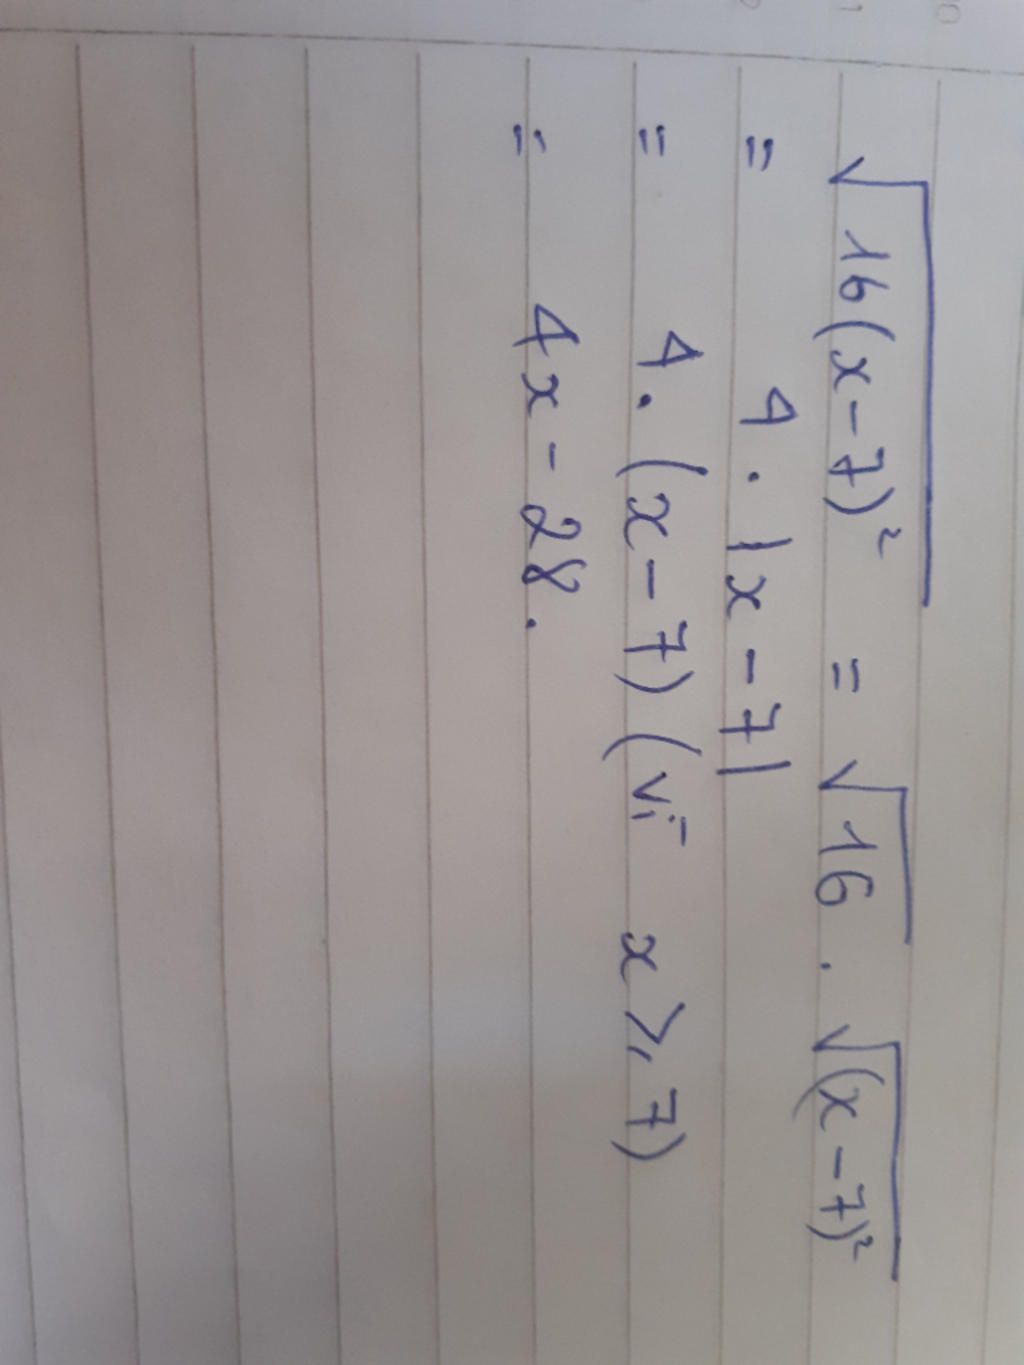 √16(x-7)² = √16 . √(x-7)²
= 4 . |x-7|
= 4 . (x-7) (vì x ⩾ 7)
= 4x - 28.